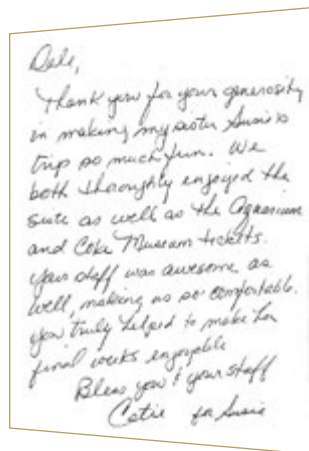 Dale,
Thank you for your generosity
in making my sister Susie's
trip so much fun. We
both thoroughly enjoyed the
suite as well as the Aquarium
and Coke Museum tickets.
Your staff was awesome as
well, making us so comfortable.
You truly helped to make her
final weeks enjoyable
Bless you & your staff
Catie for Susie